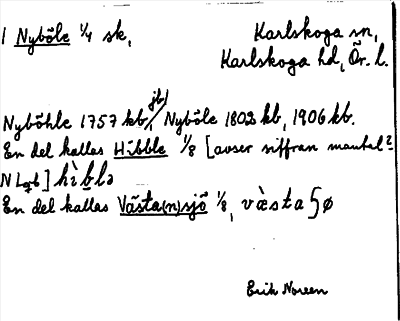 1 Nyböle 1/4 sk,
Karlskoga sn,
Karlskoga hd, Ör. l.
jb/
Nyböhle 1757 kb, Nyböle 1802 kb, 1906 kb.
En del kallas Hibble 1/8 [avser siffran mantal?
N Lgb] hìblə
En del kallas Västa(n)sjö 1/8, væ̀sta ʃø
Erik Noreen